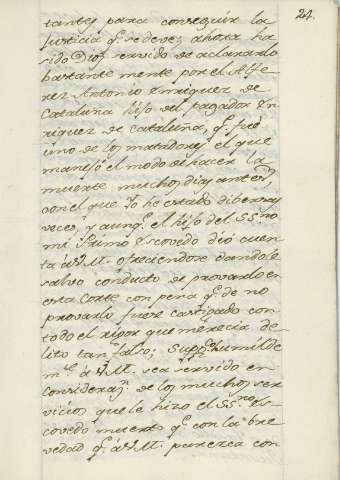 24.
tantes para conseguir la
justicia q.e se deve; ahora ha
sido Dios servido de aclararlo
bastantemente por el Alfe
rez Antonio Enriquez de
Cataluña hijo del pagador En
riquez de Cataluña, q.e fué
uno de los matadores el que
manejó el modo de hacer la
muerte muchos dias antes,
con el que Yo he estado diversas
veces, y aunq.e el hijo del SS.rio
mi Primo Escovedo dió cuen
ta á V.M. ofreciendose dandole
salvo conducto de provarlo en
esta Corte con pena q.e de no
provarlo fuese castigado con
todo el rigor que merecia de
lito tan falso; Supp.co humilde
m.te á V.M. sea servido en
consideraz.n de los muchos ser
vicios que la hizo el SS.rio Es
covedo muerto q.e con la bre
vedad q.e á V.M. parezca con